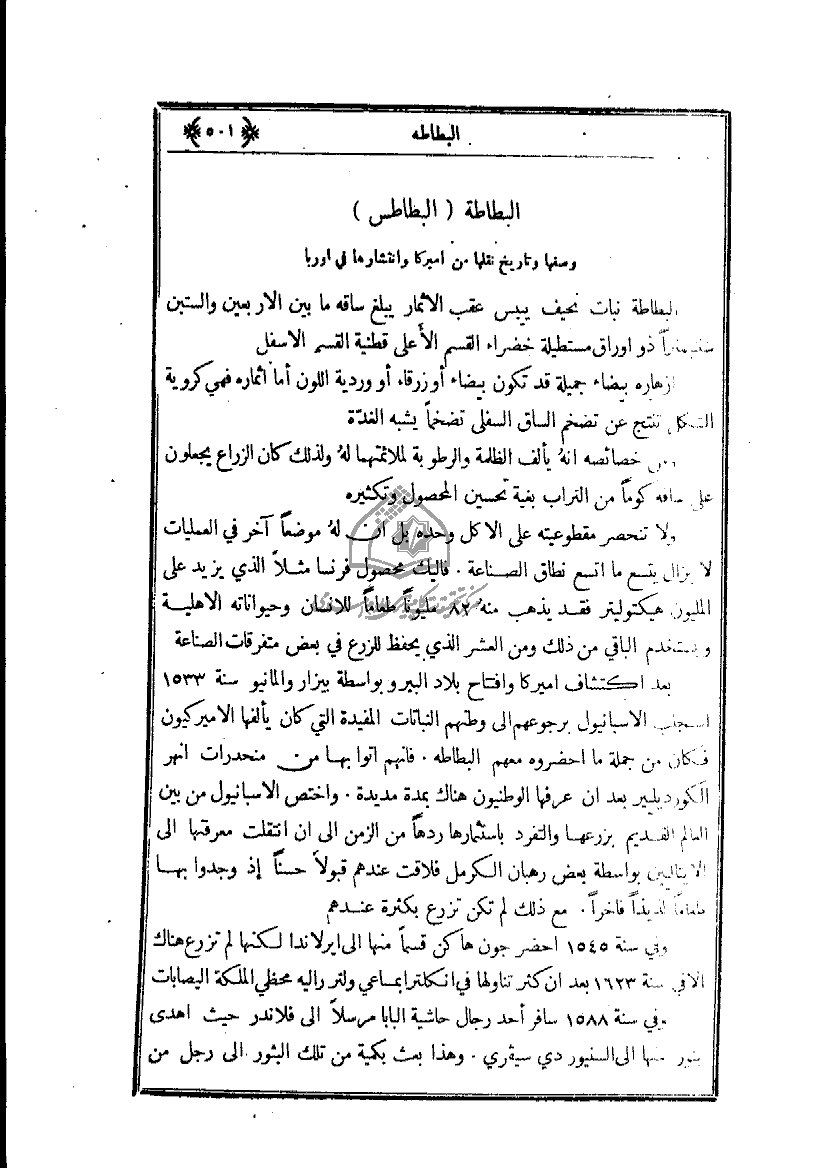 البطاطه ﴿٥٠١﴾
البطاطة ( البطاطس )
وصفها وتاريخ نقلها من اميركا وانتشارها في اوربا
البطاطة نبات نحيف ييبس عقب الاثمار يبلغ ساقه ما بين الاربعين والستين
ذو اوراق مستطيلة خضراء القسم الأعلى قطنية القسم الاسفل
ازهاره بيضاء جميلة قد تكون بيضاء أو زرقاء أو وردية اللون أما اثماره فهي كروية
الشكل تنتج عن تضخم الساق السفلي تضخماً يشبه الغدّة
خصائصه انهُ يألف الظلمة والرطوبة لملائمتهما لهُ ولذلك كان الزراع يجعلون
على ساقه كوماً من التراب بغية تحسين المحصول وتكثيره
ولا تنحصر مقطوعيته على الاكل وحده بل ان لهُ موضعاً آخر في العمليات
لا يزال يتسع ما اتسع نطاق الصناعة . فاليك محصول فرنسا مثلاً الذي يزيد على
المليون هيكتوليتر فقد يذهب منهُ ٨٢ مليوناً طعاماً للانسان وحيواناته الاهلية
ويستخدم الباقي من ذلك ومن العشر الذي يحفظ للزرع في بعض متفرقات الصناعة
بعد اكتشاف اميركا وافتتاح بلاد البيرو بواسطة بيزار والمانيو سنة ١٥٣٣
استجلب الاسبانيول برجوعهم الى وطنهم النباتات المفيدة التي كان يألفها الاميركيون
فكان من جملة ما احضروه معهم البطاطه . فانهم اتوا بها من منحدرات انهر
الكورديليير بعد ان عرفها الوطنيون هناك بمدة مديدة . واختص الاسبانيول من بين
العالم القديم بزرعها والتفرد باستثمارها ردهاً من الزمن الى ان انتقلت معرفتها الى
الايتاليين بواسطة بعض رهبان الكرمل فلاقت عندهم قبولاً حسناً إذ وجدوا بها
طعاماً لذيذاً فاخراً . مع ذلك لم تكن تزرع بكثرة عندهم
وفي سنة ١٥٤٥ احضر جون هاكن قسماً منها الى ايرلاندا لكنها لم تزرع هناك
الا في سنة ١٦٢٣ بعد ان كثر تناولها في انكلترا بمساعي ولتر راليه محظي الملكة اليصابات
وفي سنة ١٥٨٨ سافر أحد رجال حاشية البابا مرسلاً الى فلاندر حيث اهدى
منها الى السنيور دي سيڤري . وهذا بعث بكمية من تلك البثور الى رجل من